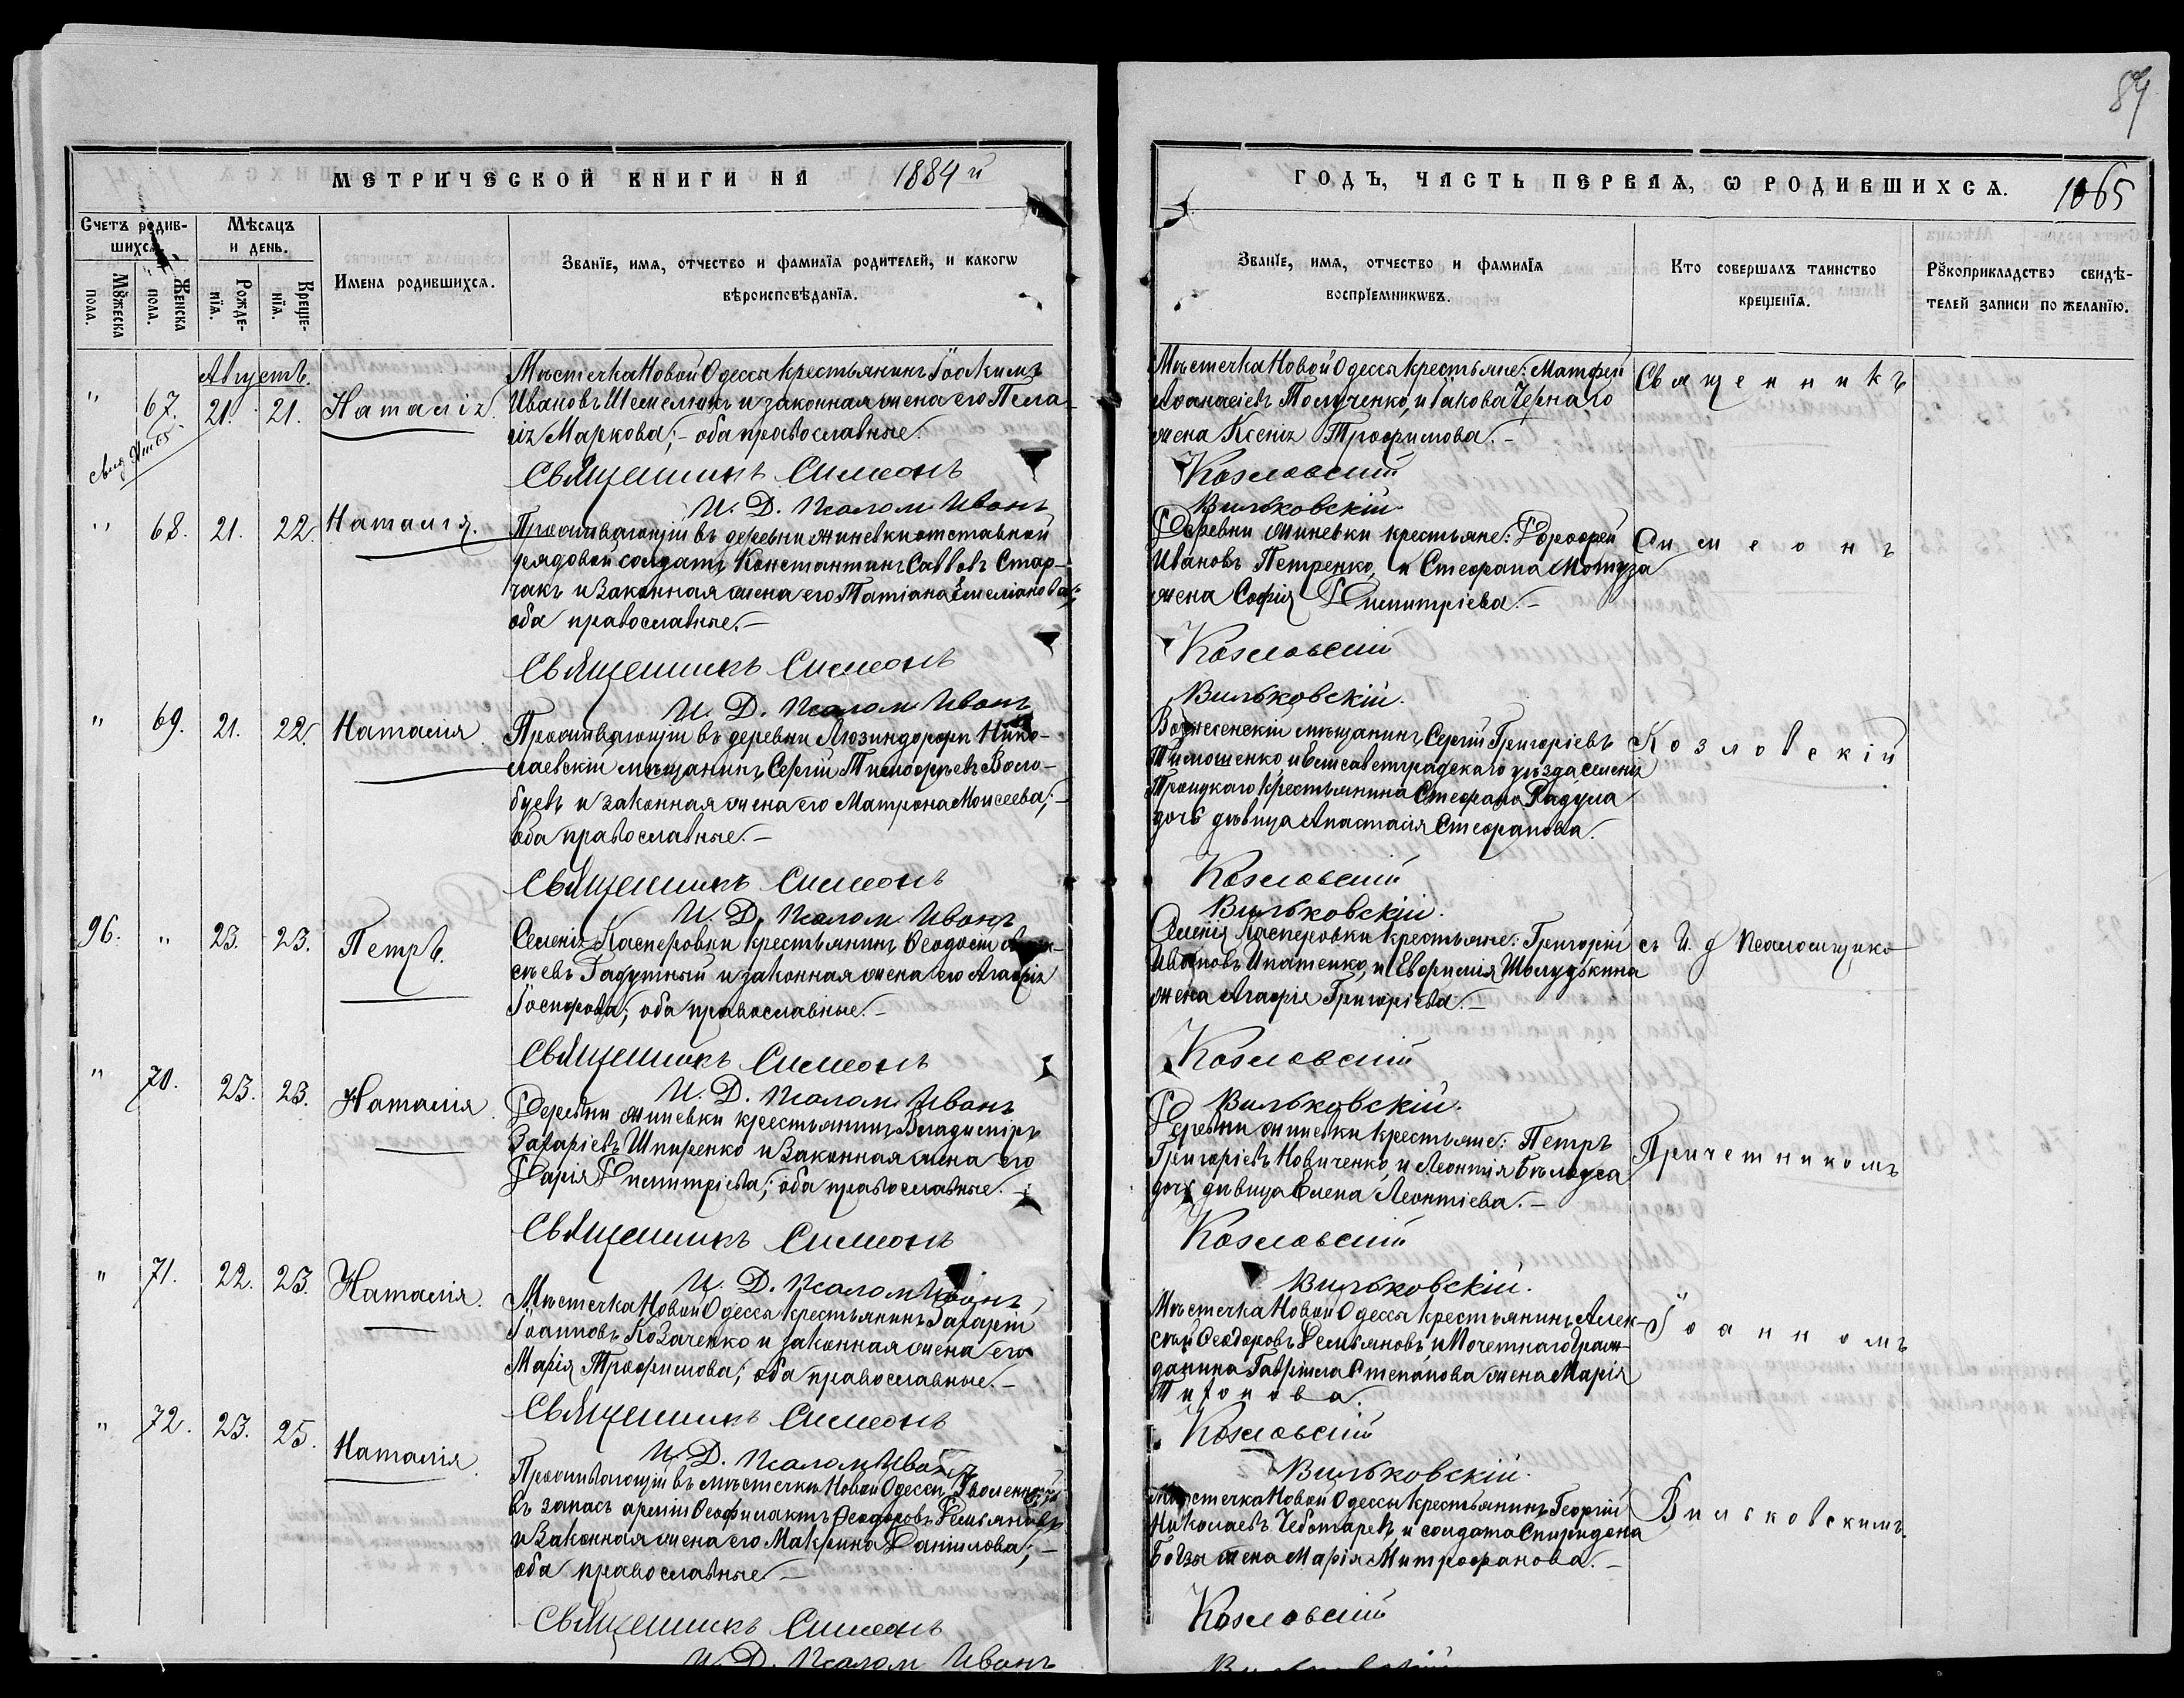 84
МЕТРИЧЕСКОЙ КНИГИ НА 1884й
ГОДЪ, ЧАСТЬ ПЕРВАѦ, Ѡ РОДИВШИХСѦ. 1065
Счетъ родив-
шихсѧ.
Мѣсѧцъ
и день.
Мꙋжеска
пола.
Женска
пола.
Рожде-
нїѧ.
Креще-
нїѧ.
Имена родившихсѧ.
Званїе, имѧ, отчество и фамилїѧ родителей, и какогѡ
вѣроисповѣданїѧ.
Званїе, имѧ, отчество и фамилїѧ
воспрїемникѡвъ.
Кто совершалъ таинство
крещенїѧ.
Рꙋкоприкладство свидѣ-
телей записи по желанїю.
Августъ.
" 67. 21. 21. Наталія.
Мѣстечка Новой Одессы крестьянинъ Іоакимъ
Ивановъ Шемелюкъ и законная жена его Пела-
гія Маркова; - оба православные.
Священникъ Симеонъ
И. Д. Псалом. Иванъ
Мѣстечка Новой Одессы крестьяне: Матфей
Аѳанасіевъ Толученко, и Іакова Чернаго
жена Ксенія Трофимова. -
Козловскій
Вильковскій.
Священникъ
" 68. 21. 22. Наталія.
Проживающій въ деревни Жиневки отставной
рядовой солдатъ Константинъ Саввовъ Стар-
чакъ и законная жена его Татіана Емеліанова;
оба православные. -
Священникъ Симеонъ
И. Д. Псалом. Иванъ
Деревни Жиневки крестьяне: Дорофей
Ивановъ Петренко, и Стефана Мотуза
жена Софія Димитріева. -
Козловскій
Вильковскій.
Симеонъ
" 69. 21. 22. Наталія.
Проживающій въ деревни Люзиндорфъ Нико-
лаевскій мѣщанинъ Сергій Тимофѣевъ Воло-
буевъ и законная жена его Матрона Моисеева; -
оба православные. -
Священникъ Симеонъ
И. Д. Псалом. Иванъ
Вознесенскій мѣщанинъ Сергій Григоріевъ
Тимошенко и Елисаветградскаго уѣзда селенія
Троицкаго крестьянина Стефана Радула
дочь дѣвица Анастасія Стефанова.
Козловскій
Вильковскій.
Козловскій
96. " 23. 23. Петръ.
Селенія Касперовки крестьянинъ Ѳеодосій
сѣевъ Гадутный и законная жена его Агафія
Іосифова; оба православные. -
Священникъ Симеонъ
И. Д. Псалом. Иванъ
Селенія Касперовки крестьяне: Григорій
Ивановъ Ипатенко, и Евфимія Шолудькина
жена Агафія Григоріева. -
Козловскій
Вильковскій.
съ И. д Псаломщика
" 70. 23. 23. Наталія.
Деревни Жиневки крестьянинъ Владиміръ
Захаріевъ Шпиренко и законная жена его
Дарія Димитріева; оба православные. -
Священникъ Симеонъ
И. Д. Псалом. Иванъ
Деревни Жиневки крестьяне: Петръ
Григоріевъ Новиченко, и Леонтія Бѣлоуса
дочь дѣвица Елена Леонтіева. -
Козловскій
Вильковскій.
Причетникомъ
" 71. 22. 23. Наталія.
Мѣстечка Новой Одессы крестьянинъ Захарій
Іоанновъ Козаченко и законная жена его
Марія Трофимова; оба православные. -
Священникъ Симеонъ
И. Д. Псалом. Иванъ
Мѣстечка Новой Одессы крестьянинъ Алек-
сѣй Ѳеодоровъ Демьяновъ и Почетнаго Граж-
данина Гавріила Степанова жена Марія
Титова.
Козловскій
Вильковскій.
Іоанномъ
" 72. 23. 25. Наталія.
Проживающій въ мѣстечкѣ Новой Одессы Уволенный
въ запасъ арміи Ѳеофилактъ Ѳеодоровъ Демьяновъ
и законная жена его Макрина Даніилова; -
оба православные -
Священникъ Симеонъ
И. Д. Псалом. Иванъ
Мѣстечка Новой Одессы крестьянинъ Георгій
Николаевъ Чеботаревъ, и солдата Спиридона
жена Марія Митрофанова. -
Козловскій
Вильковскимъ.